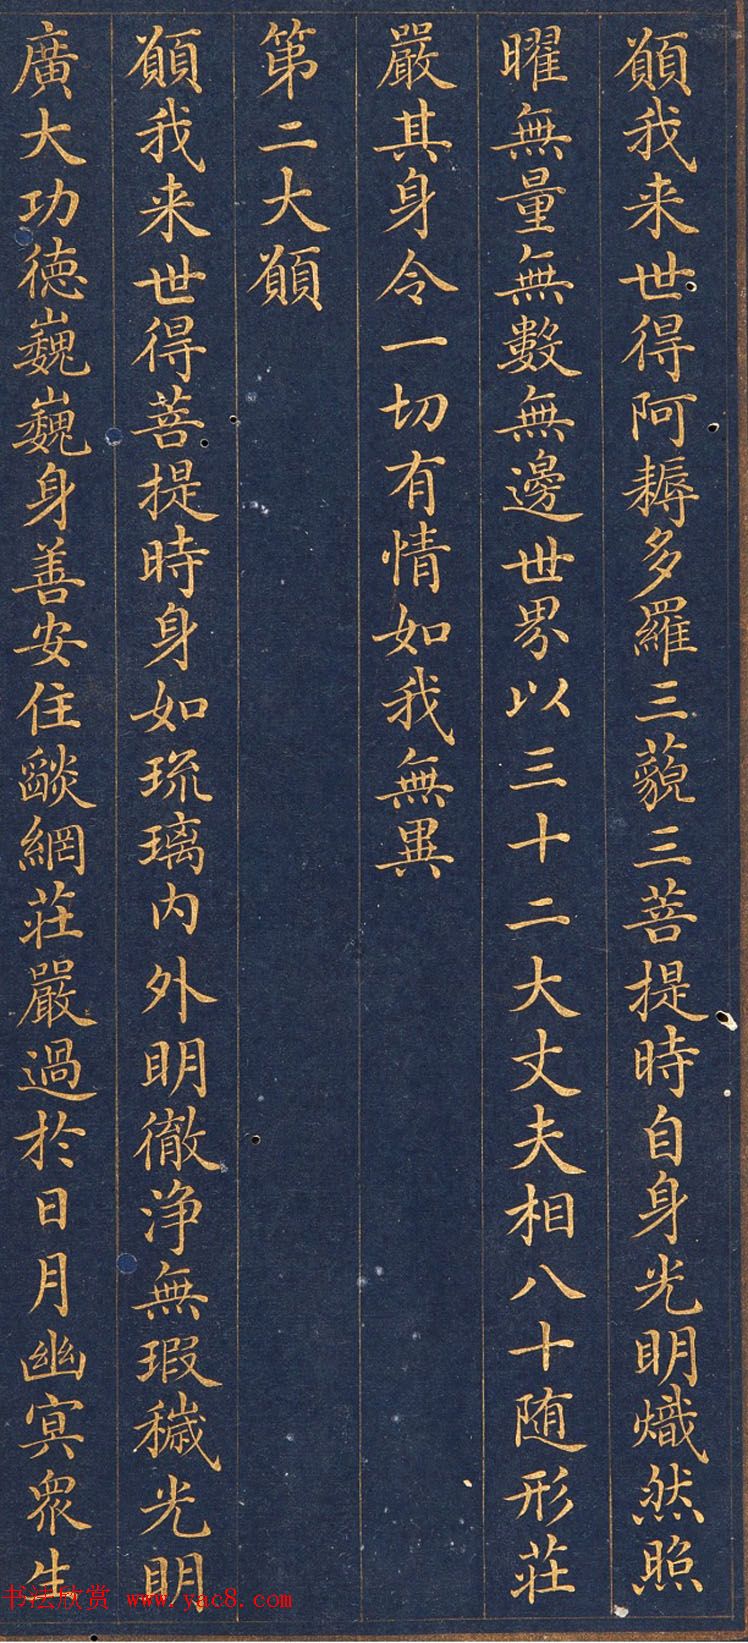 願我来世得阿耨多羅三藐三菩提時自身光明熾然照
曜無量無數無邊世界以三十二大丈夫相八十随形莊
嚴其身令一切有情如我無異
第二大願
願我来世得菩提時身如琉璃内外明徹浄無瑕穢光明
廣大功徳巍巍身善安住燄網莊嚴過於日月幽冥衆生
书法欣赏 www.yac8.com